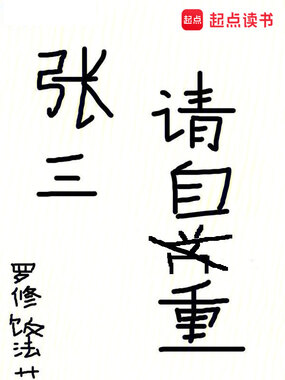 起点 起点读书
张三
请自重
罗修饭法艹